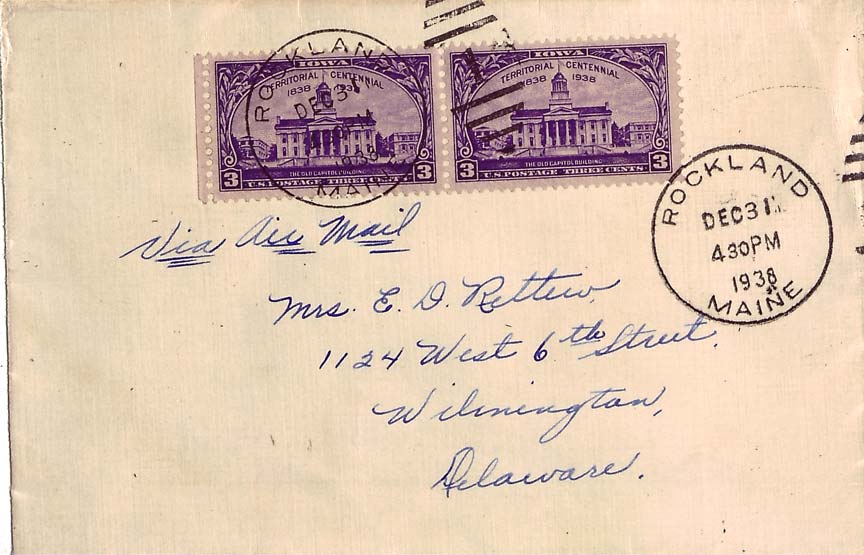 IOWA
TERRITORIAL CENTENNIAL
1838 1938
THE OLD CAPITOL BUILDING
3 U.S. POSTAGE THREE CENTS 3
IOWA
TERRITORIAL CENTENNIAL
1838 1938
THE OLD CAPITOL BUILDING
3 U.S. POSTAGE THREE CENTS 3
ROCKLAND
DEC 31
1938
MAINE
ROCKLAND
DEC 31
430PM
1938
MAINE
Via Air Mail
Mrs. E. D. Rettew,
1124 West 6th Street,
Wilmington,
Delaware.